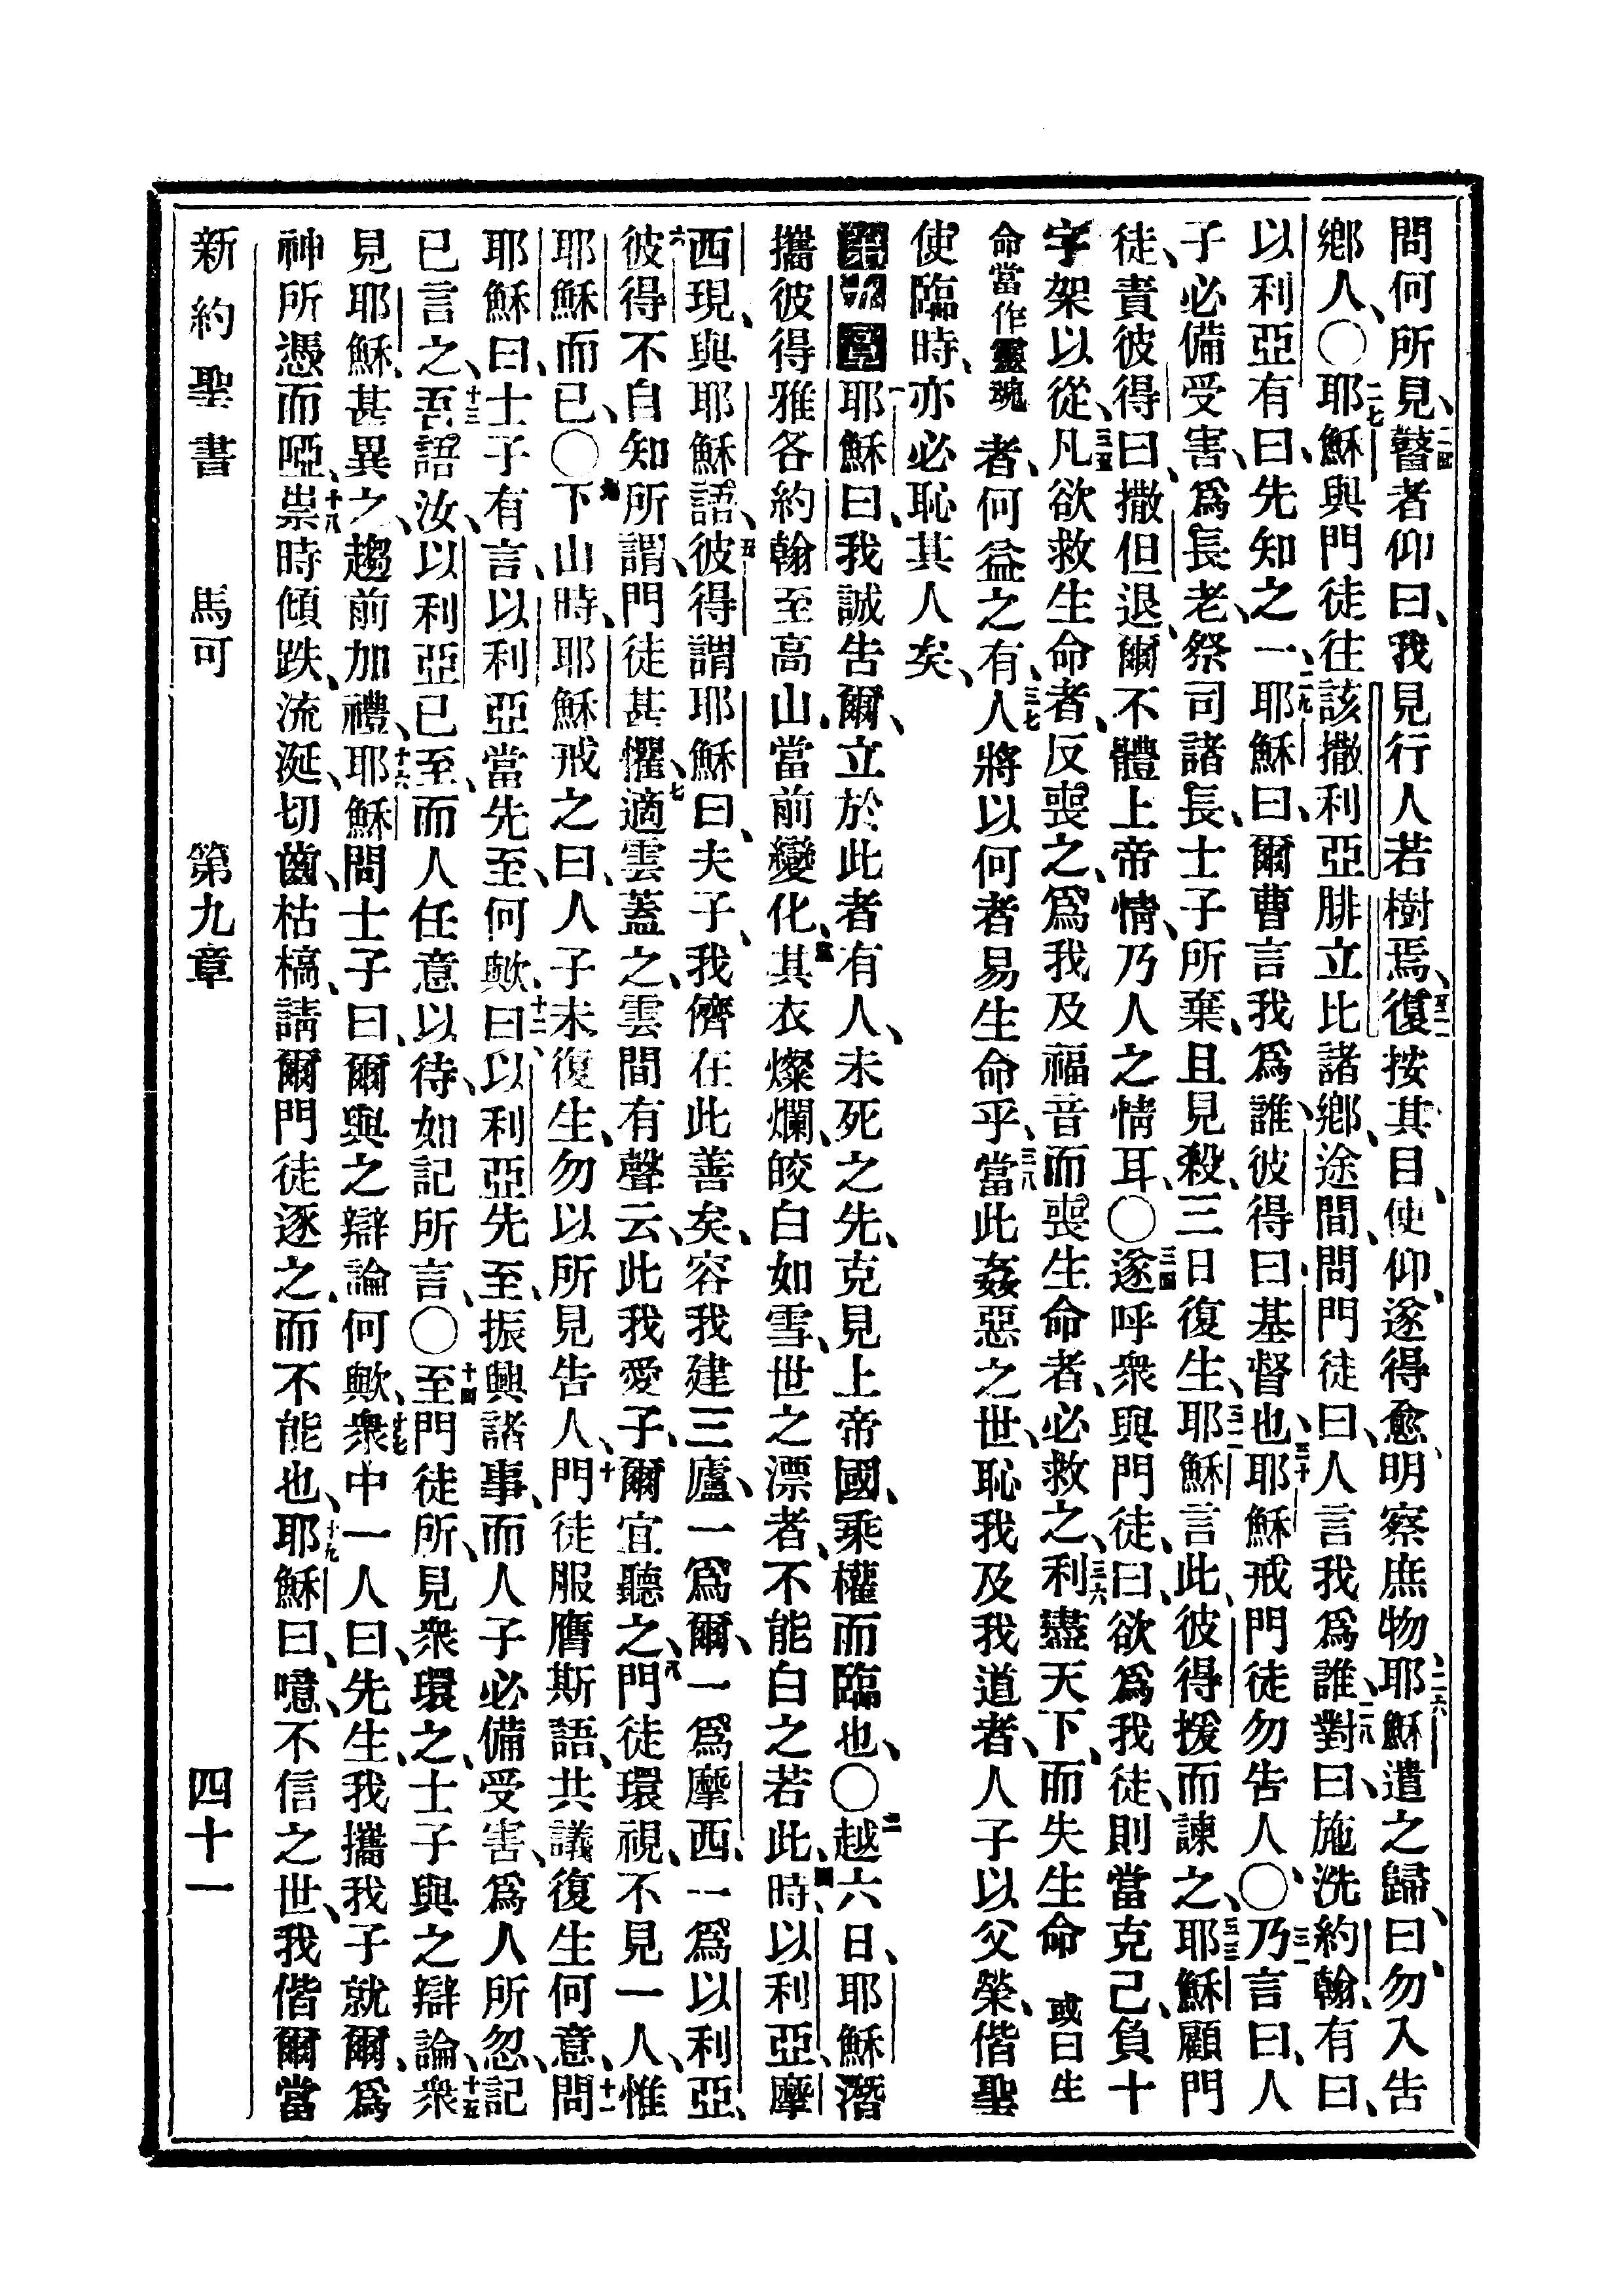 問何所見、二四瞽者仰曰、我見行人若樹焉、二五復按其目、使仰、遂得愈、明察庶物、二六耶穌遣之歸、曰、勿入告
鄉人、〇二七耶穌與門徒往該撒利亞腓立比諸鄉、途間、問門徒曰、人言我爲誰、二八對曰、施洗約翰、有曰、
以利亞、有曰、先知之一、二九耶穌曰、爾曹言我爲誰、彼得曰、基督也、三十耶穌戒門徒勿告人、〇三一乃言曰、人
子必備受害、爲長老、祭司諸長、士子所棄、且見殺、三日復生、三二耶穌言此、彼得援而諫之、三三耶穌顧門
徒、責彼得曰、撒但退、爾不體上帝情、乃人之情耳、〇三四遂呼衆與門徒、曰、欲爲我徒、則當克己、負十
字架以從、三五凡欲救生命者、反喪之、爲我及福音而喪生命者、必救之、三六利盡天下、而失生命 或曰生
命當作靈魂 者、何益之有、三七人將以何者易生命乎、三八當此姦惡之世、恥我及我道者、人子以父榮、偕聖
使臨時、亦必恥其人矣、
第九章 一耶穌曰、我誠告爾、立於此者有人、未死之先、克見上帝國、乘權而臨也、〇二越六日、耶穌潛
攜彼得雅各約翰至高山、當前變化、三其衣燦爛、皎白如雪、世之漂者、不能白之若此、四時、以利亞、摩
西現、與耶穌語、五彼得謂耶穌曰、夫子、我儕在此善矣、容我建三廬、一爲爾、一爲摩西、一爲以利亞、
六彼得不自知所謂、門徒甚懼、七適雲蓋之、雲間有聲云、此我愛子、爾宜聽之、八門徒環視、不見一人、惟
耶穌而已、〇九下山時、耶穌戒之曰、人子未復生、勿以所見告人、十門徒服膺斯語、共議復生何意、十一問
耶穌曰、士子有言、以利亞當先至、何歟、十二曰、以利亞先至、振興諸事、而人子必備受害、爲人所忽、記
已言之、十三吾語汝、以利亞已至、而人任意以待、如記所言、〇十四至門徒所、見衆環之、士子與之辯論、十五衆
見耶穌、甚異之、趨前加禮、十六耶穌問士子曰、爾與之辯論何歟、十七衆中一人曰、先生、我攜我子就爾、爲
神所憑而啞、十八祟時傾跌、流涎、切齒、枯槁、請爾門徒逐之、而不能也、十九耶穌曰、噫、不信之世、我偕爾當
新約聖書 馬可 第九章 四十一